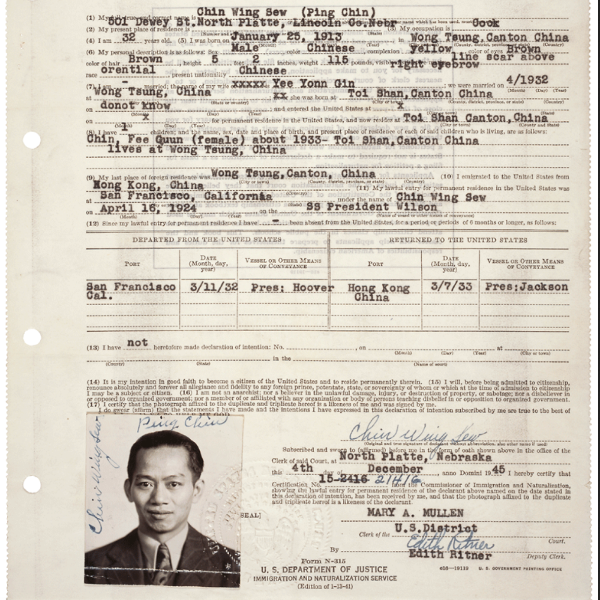 Chin Wing Sew (Ping Chin)
(1) My
601 Dewey St, North Platte, Lincoln Co, Nebr Cook
(2) My present place of residence is
32 January 25, 1913 Wong Tsung, Canton China
(4) I am years old. (5) I was born on
Male Chinese yellow Brown
(6) My personal description is: Sex
Brown 5 2 115 line scar above
color of hair height feet inches, weight pounds,
orential Chinese right eyebrow
race present nationality
xxxxx Yee Yonn Gin 4/1932
(7) I am married; the name of my we were married on
Wong Tsung, China xx Toi Shan, Canton China
she was born at
donot know x
on and entered the United States at
x Toi Shan Canton, China
on for permanent residence in the United States, and now resides at
1
(8) I have children; and the name, sex, date and place of birth, and present place of residence of each of said children who is living, are as follows:
Chin, Fee Quun (female) about 1933- Toi Shan, Canton China
lives at Wong Tsung, China
Wong Tsung, Canton, China
(9) My last place of foreign residence was (10) I emigrated to the United States from
Hong Kong, China
(11) My lawful entry for permanent residence in the United States was
San Francisco, California Chin Wing Sew
at under the name of
April 16, 1924 SS President Wilson
on on the
(12) Since my lawful entry for permanent residence I have - been absent from the United States, for a period or periods of 6 months or longer, as follows:
DEPARTED FROM THE UNITED STATES RETURNED TO THE UNITED STATES
PORT DATE (Month, day, year) VESSEL OR OTHER MEANS OF CONVEYANCE PORT DATE (Month, day, year) VESSEL OR OTHER MEANS OF CONVEYANCE
San Francisco Cal. 3/11/32 Pres: Hoover Hong Kong China 3/7/33 Pres: Jackson
(13) I have not heretofore made declaration of intention: No. , on at
(County) (State) in the (Name of court)
(14) It is my intention in good faith to become a citizen of the United States and to reside permanently therein. (15) I will, before being admitted to citizenship,
renounce absolutely and forever all allegiance and fidelity to any foreign prince, potentate, state, or sovereignty of whom or which at the time of admission to citizenship
I may be a subject or citizen. (16) I am not an anarchist; nor a believer in the unlawful damage, injury, or destruction of property, or sabotage; nor a disbeliever in
or opposed to organized government; nor a member of or affiliated with any organization or body of persons teaching disbelief in or opposition to organized government.
(17) I certify that the photograph affixed to the duplicate and triplicate hereof is a likeness of me and was signed by me.
I do swear (affirm) that the statements I have made and the intentions I have expressed in this declaration of intention subscribed by me are true to the best of
Ping Chin
Chin Wing Sew
Chin Wing Sew
Subscribed and sworn to (affirmed) before me in the form of oath shown above in the office of the
Clerk of said Court, at North Platte, Nebraska
this 4th day of December anno Domini 1945 I hereby certify that
Certification No. 15-2416 21416 from the Commissioner of Immigration and Naturalization,
showing the lawful entry for permanent residence of the declarant above named on the date stated in
this declaration of intention, has been received by me, and that the photograph affixed to the duplicate
and triplicate hereof is a likeness of the declarant.
MARY A. MULLEN
[SEAL]
U.S. District
Clerk of the Court.
Edith Ritner
By Edith Ritner Deputy Clerk.
Form N-315
U. S. DEPARTMENT OF JUSTICE
IMMIGRATION AND NATURALIZATION SERVICE
(Edition of 1-13-41)
U. S. GOVERNMENT PRINTING OFFICE